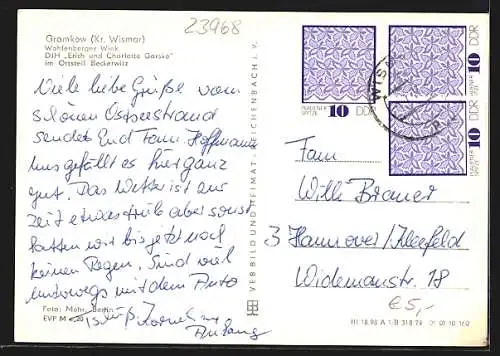 23968
Gramkow (Kr. Wismar)
Wohlenberger Wiek
DJH „Erich und Charlotte Garske"
im Ortsteil Beckerwitz
Viele liebe Grüße vom
schönen Ostseestrand
sendet Euch Fam. Hoffmann
Uns gefällt es hier ganz
gut. Das Wetter ist zur
Zeit etwas trübe aber sonst
hatten wir bis jetzt noch
keinen Regen. Sind viel
unterwegs mit dem Auto
Foto: Mohr, Berlin
EVP M
Anfang
VEB BILD UND HEIMAT, REICHENBACH i. V.
PLAUENER SPITZE 10 DDR
PLAUENER SPITZE 10 DDR
PLAUENER SPITZE 10 DDR
WIS
Fam
Willi Brauer
3 Hannover/Kleefeld
Widemanstr. 18
€ 5,-
01 01 10 160